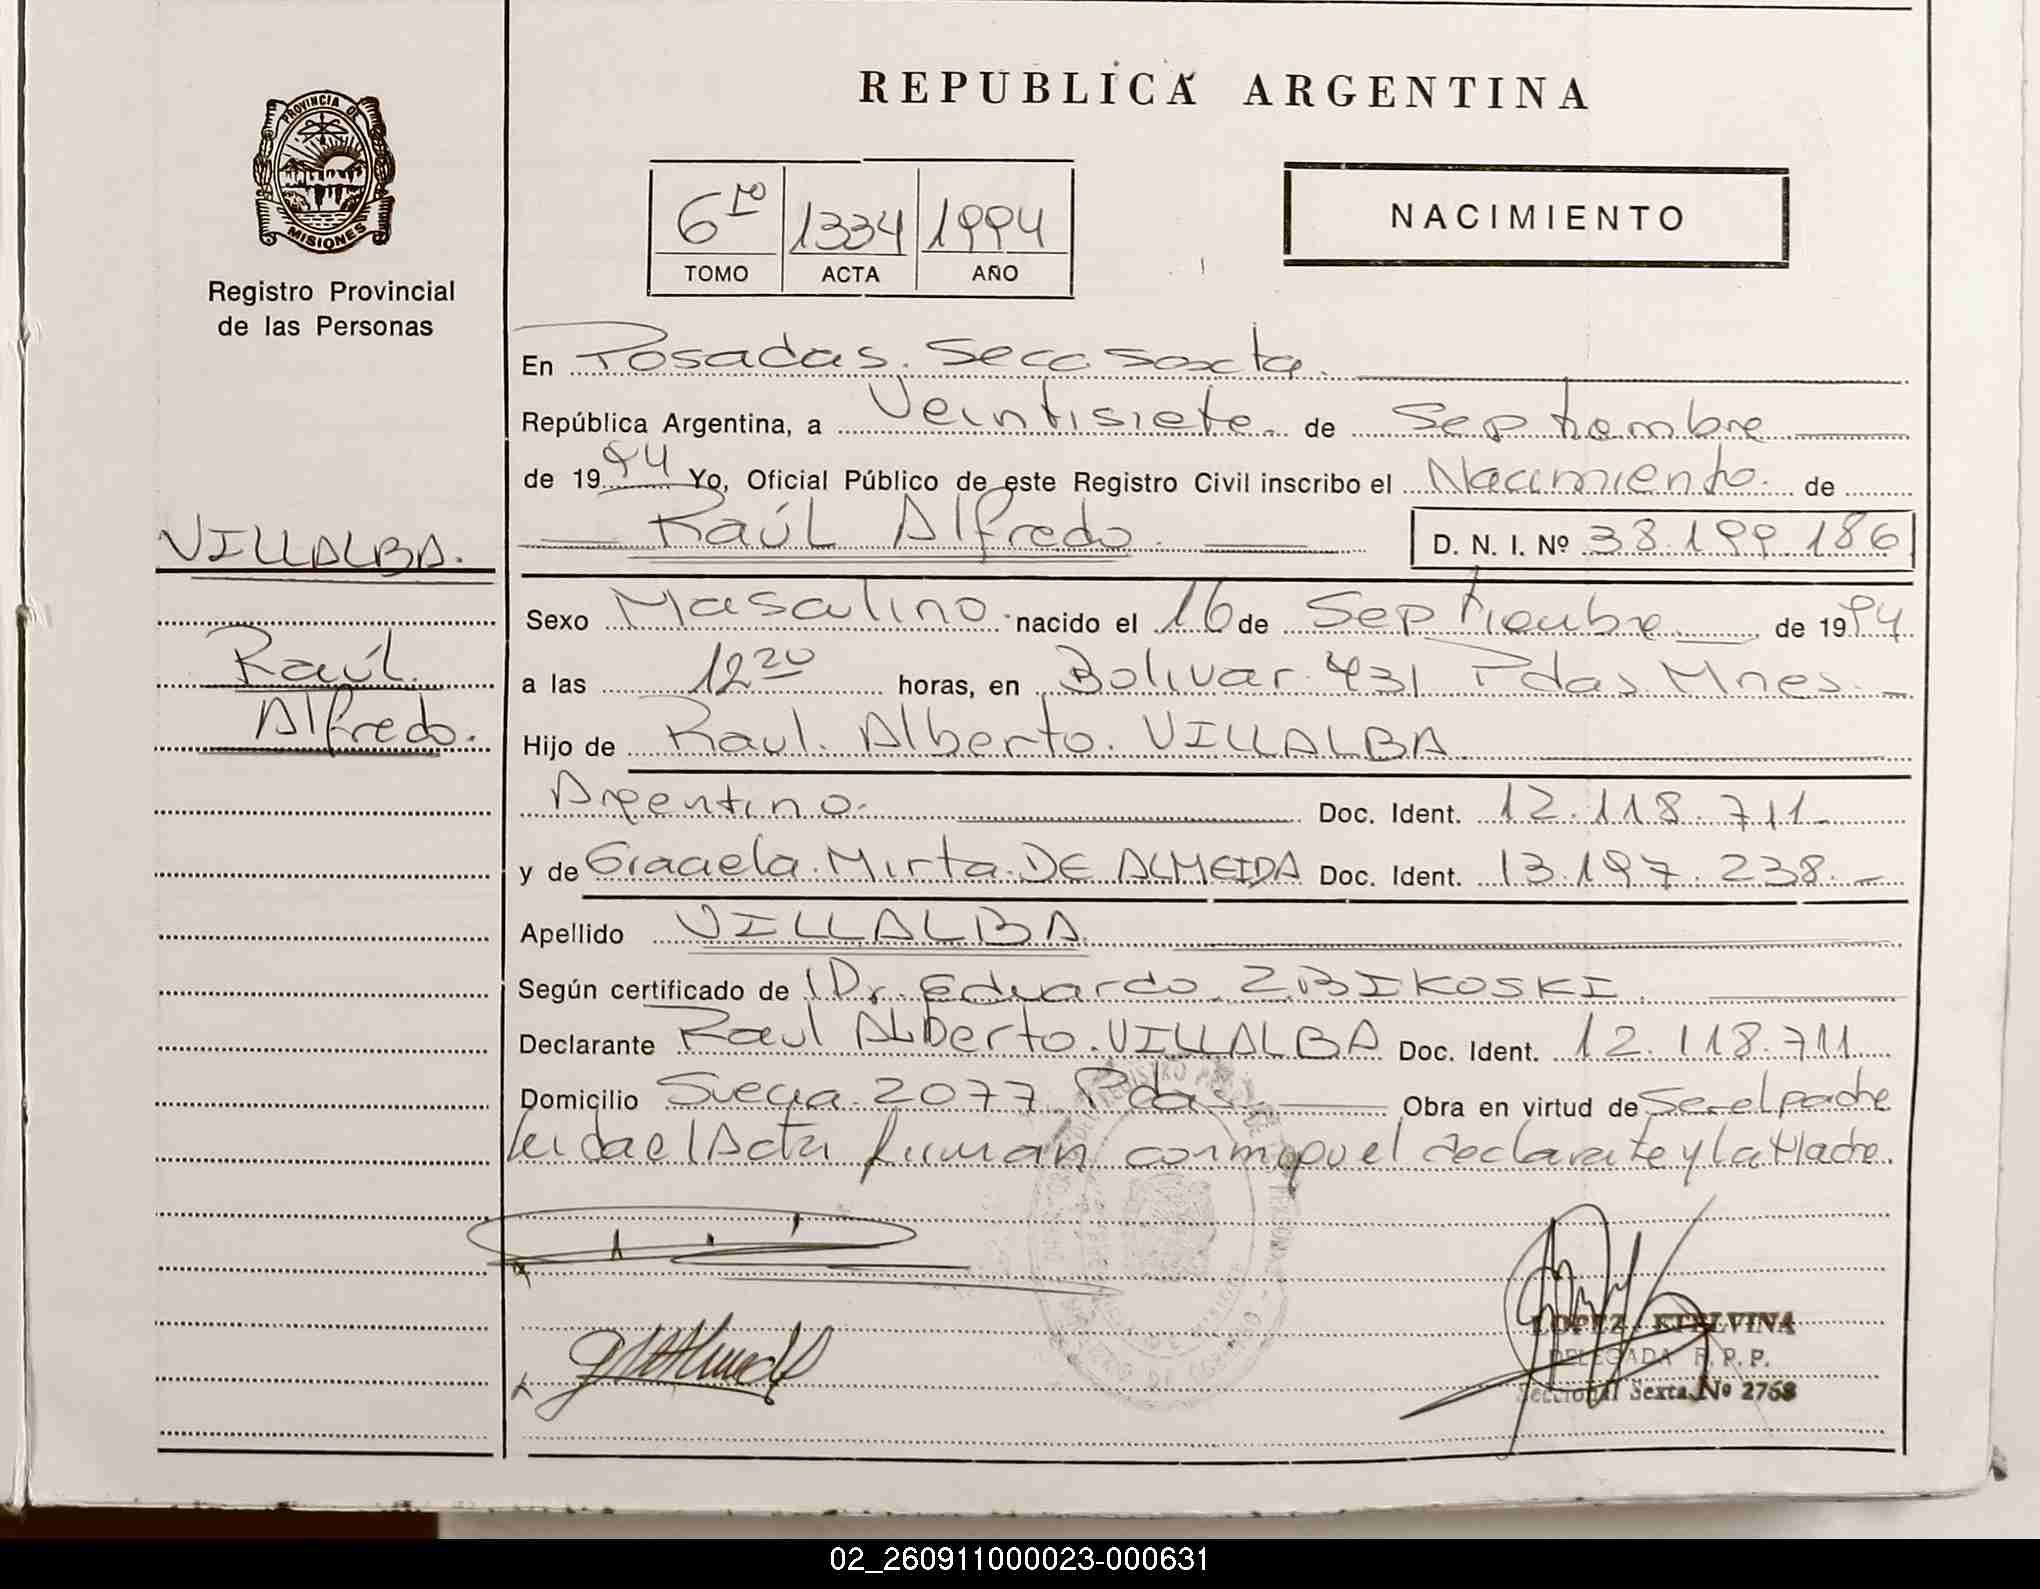 REPUBLICA ARGENTINA
PROVINCIA DE
MISIONES
Registro Provincial
de las Personas
6to 1334 1994
TOMO ACTA AÑO
NACIMIENTO
En Posadas. Secc. Sexta.
República Argentina, a Veintisiete de Septiembre
de 1994 Yo, Oficial Público de este Registro Civil inscribo el Nacimiento de
Raúl Alfredo D. N. I. Nº 38.199.186
VILLALBA.
Raúl
Alfredo.
Sexo Masculino nacido el 16 de Septiembre de 1994
a las 12 20 horas, en Bolivar 431 Pdas. Mnes.
Hijo de Raul Alberto VILLALBA
Argentino. Doc. Ident. 12.118.711
y de Graciela Mirta DE ALMEIDA Doc. Ident. 13.197.238
Apellido VILLALBA
Según certificado de Dr. Eduardo ZBIKOSKI
Declarante Raul Alberto VILLALBA Doc. Ident. 12.118.711
Domicilio Suecia 2077 Pdas. Obra en virtud de Ser el padre
leida el Acta firman conmigo el declarante y la Madre.
LOPEZ ETELVINA
DELEGADA R. P. P.
Seccional Sexta Nº 2768
02_260911000023-000631